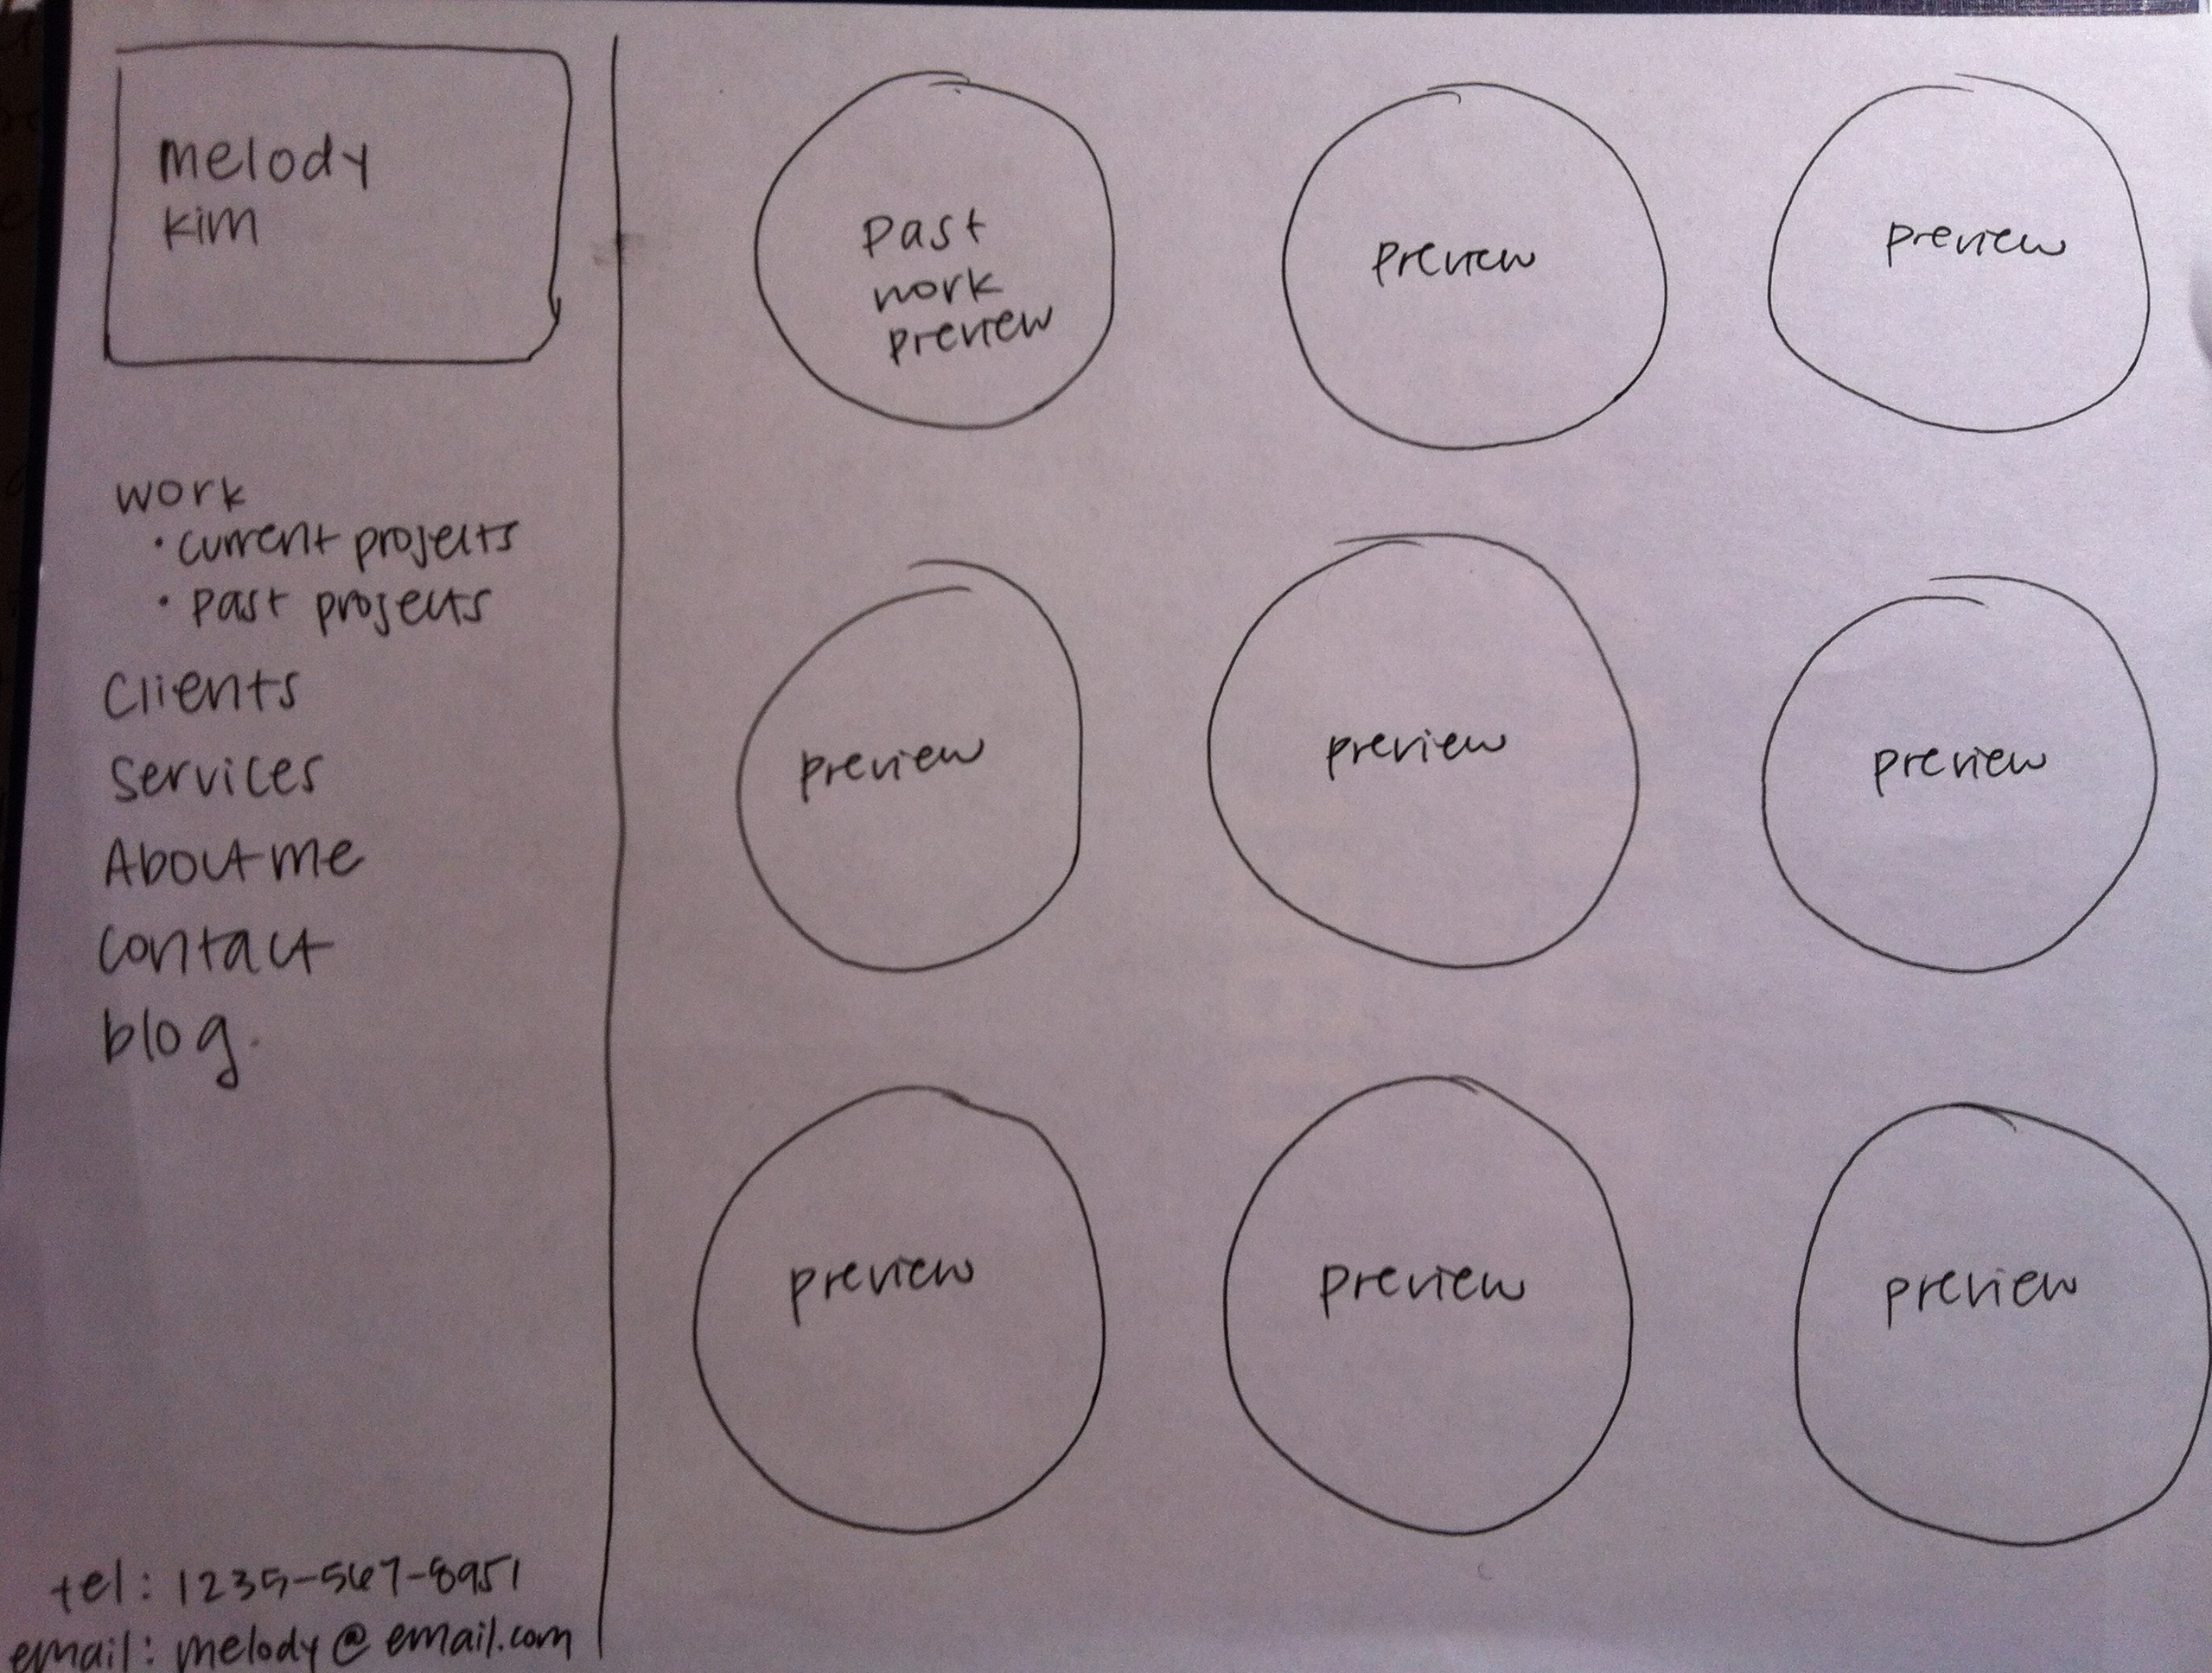 melody
kim
work
• current projects
• past projects
Clients
Services
About me
contact
blog.
tel: 1235-567-8951
email: melody@email.com
past
work
preview
preview
preview
preview
preview
preview
preview
preview
preview